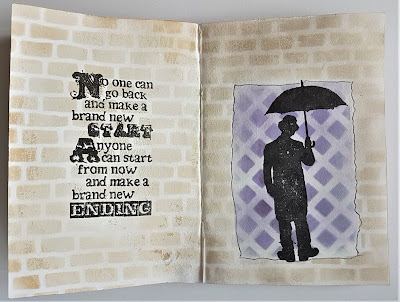 No one can
go back
and make a
brand new
START
Anyone
can start
from now
and make a
brand new
ENDING